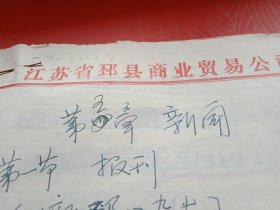 江苏省邳县商业贸易公司
第五章 新闻
第一节 报刊